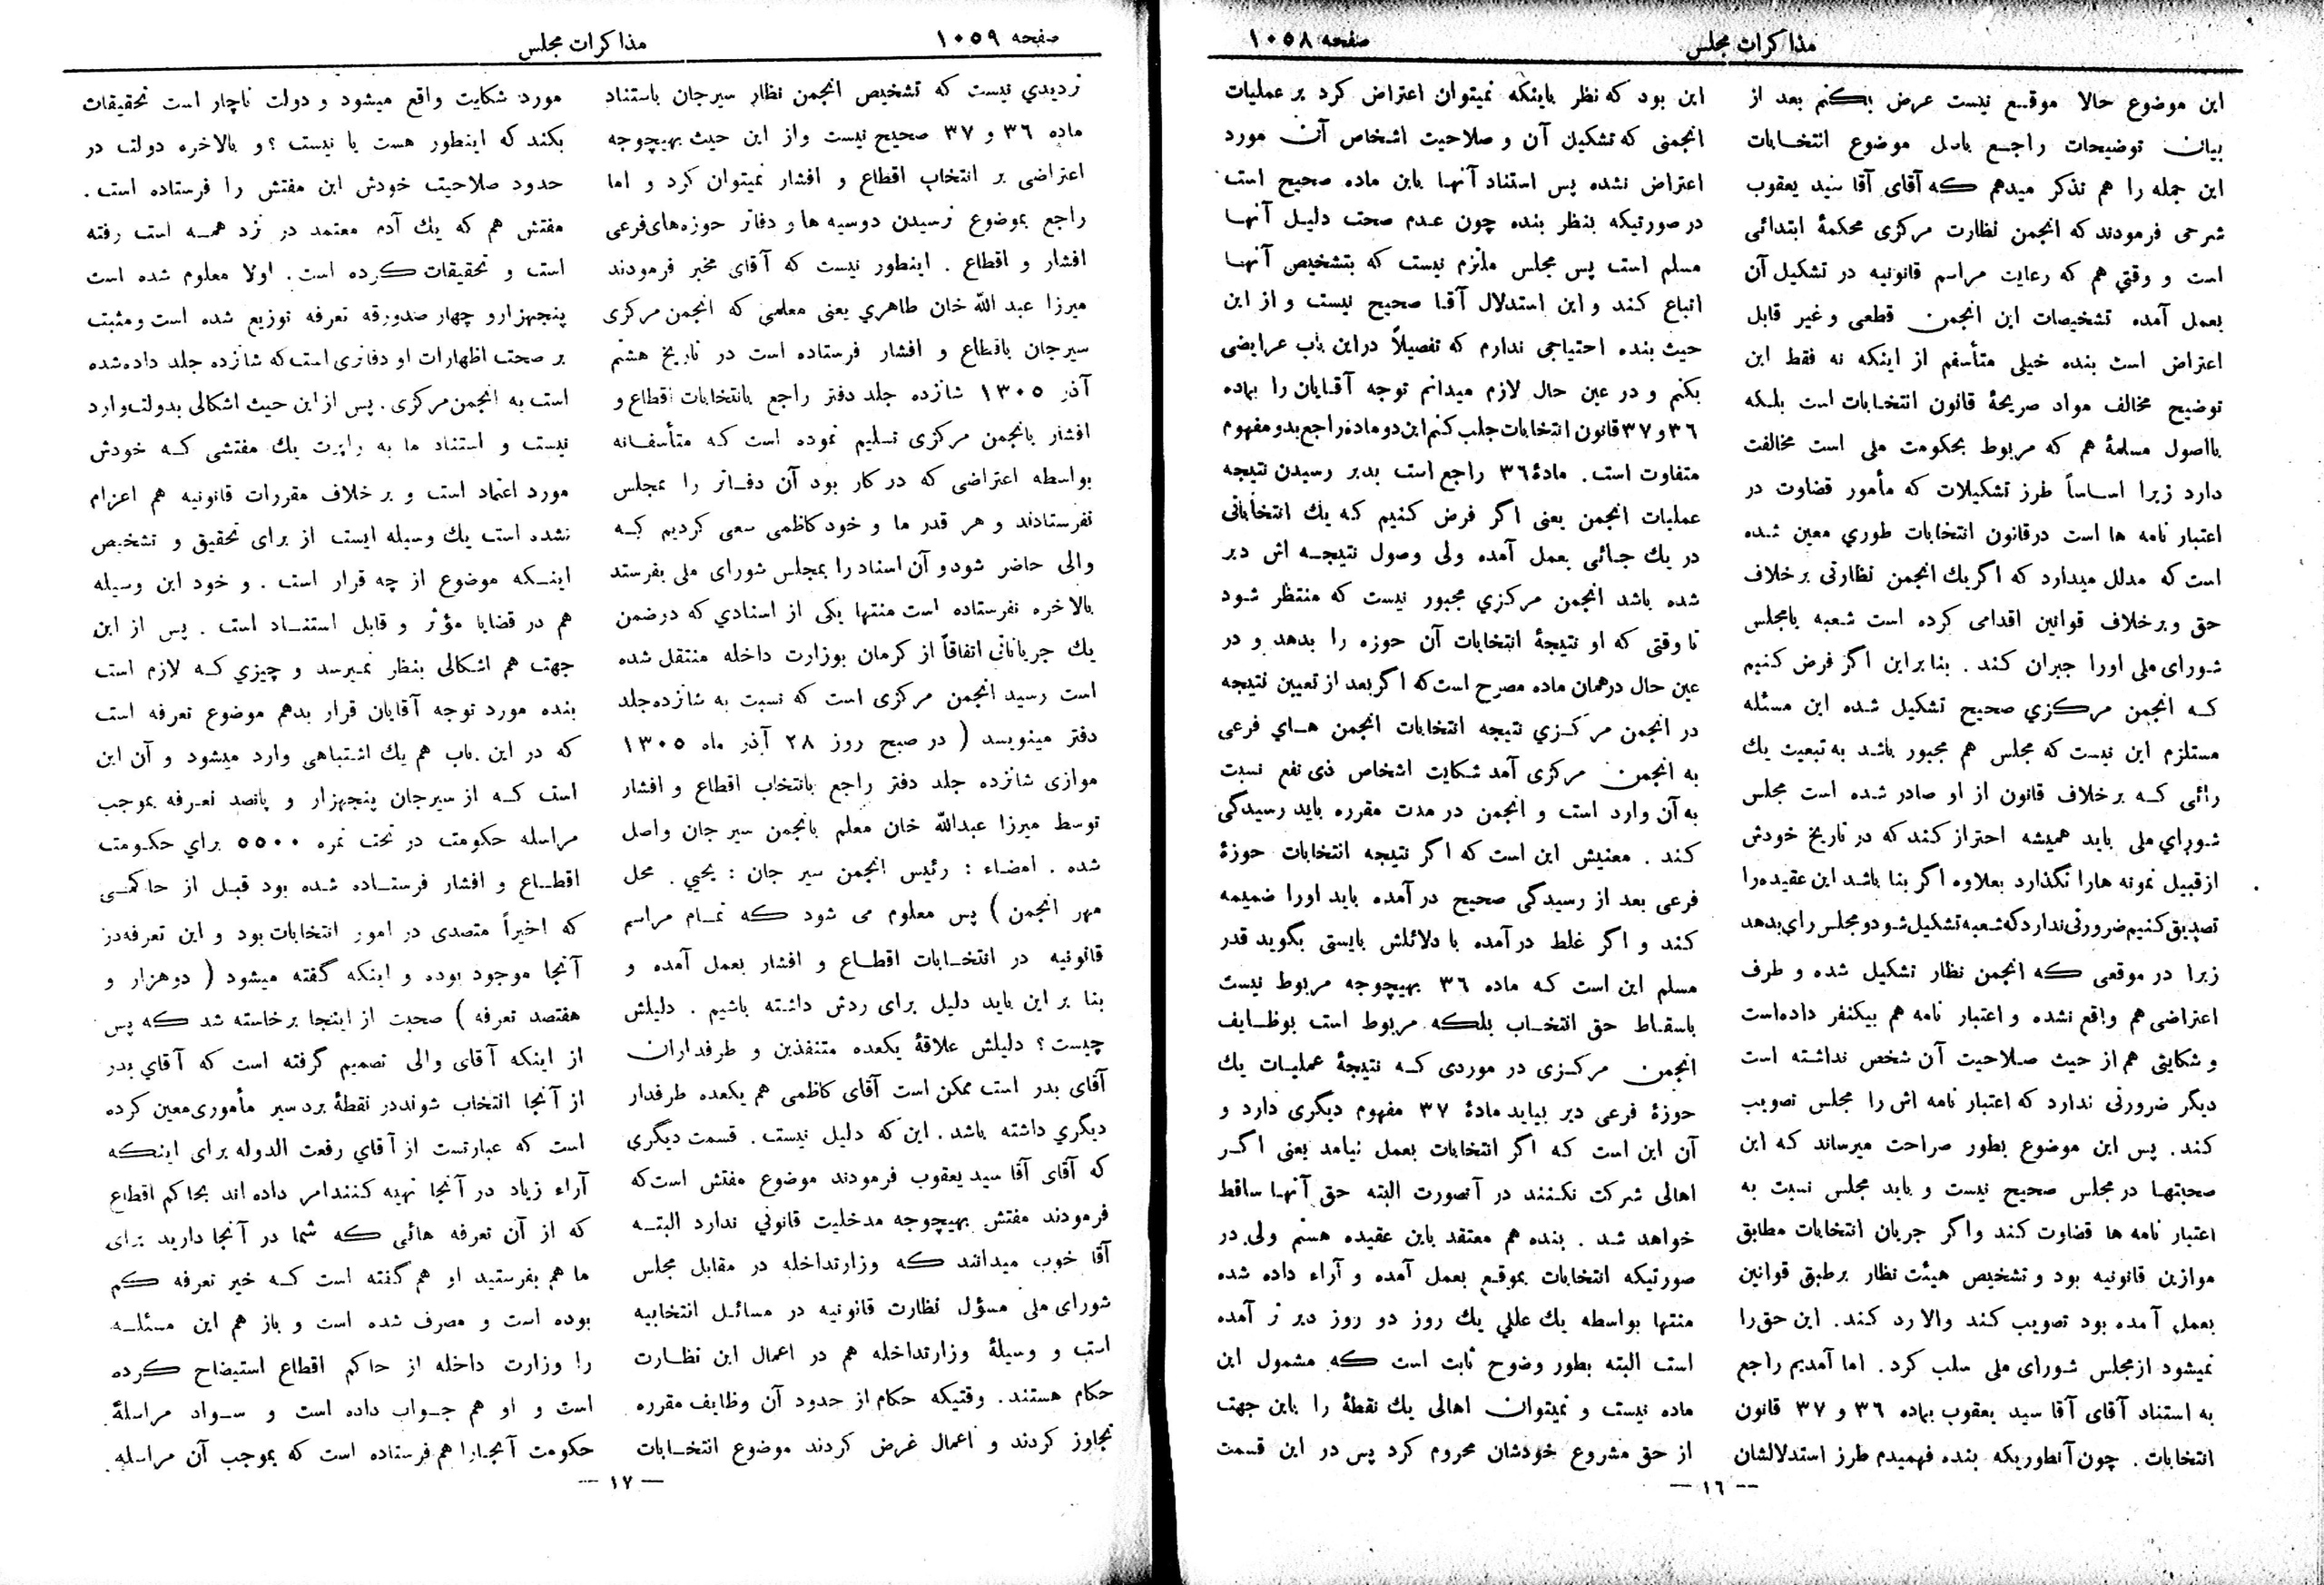 صفحه ۱۰۵۸
مذاکرات مجلس
این موضوع حالا موقع نیست عرض بکنم بعد از
بیان توضیحات راجع باصل موضوع انتخابات
این جمله را هم تذکر میدهم که آقای آقا سید یعقوب
شرحی فرمودند که انجمن نظارت مرکزی محکمۀ ابتدائی
است و وقتي هم که رعایت مراسم قانونیه در تشکیل آن
بعمل آمده تشخیصات این انجمن قطعی و غیر قابل
اعتراض است بنده خیلی متأسفم از اینکه نه فقط این
توضیح مخالف مواد صریحۀ قانون انتخابات است بلکه
بااصول مسلمۀ هم که مربوط بحکومت ملی است مخالفت
دارد زیرا اساساً طرز تشکیلات که مأمور قضاوت در
اعتبار نامه ها است درقانون انتخابات طوري معین شده
است که مدلل میدارد که اگریك انجمن نظارتی برخلاف
حق وبرخلاف قوانین اقدامی کرده است شعبه یامجلس
شورای ملی اورا جبران کند . بنا براین اگر فرض کنیم
که انجمن مرکزي صحیح تشکیل شده این مسئله
مستلزم این نیست که مجلس هم مجبور باشد به تبعیت یك
رائی که برخلاف قانون از او صادر شده است مجلس
شوراي ملی باید همیشه احتراز کند که در تاریخ خودش
ازقبیل نمونه هارا نگذارد بعلاوه اگر بنا باشد این عقیده را
تصدیق کنیم ضرورتی ندارد که شعبه تشکیل شود و مجلس رای بدهد
زیرا در موقعی که انجمن نظار تشکیل شده و طرف
اعتراضی هم واقع نشده و اعتبار نامه هم بیکنفر داده است
و شکایتی هم از حیث صلاحیت آن شخص نداشته است
دیگر ضرورتی ندارد که اعتبار نامه اش را مجلس تصویب
کند . پس این موضوع بطور صراحت میرساند که این
صحبتها در مجلس صحیح نیست و باید مجلس نسبت به
اعتبار نامه ها قضاوت کند واگر جریان انتخابات مطابق
موازین قانونیه بود و تشخیص هیئت نظار برطبق قوانین
بعمل آمده بود تصویب کند والا رد کند . این حق را
نمیشود ازمجلس شورای ملی سلب کرد . اما آمدیم راجع
به استناد آقای آقا سید یعقوب بماده ۳۶ و ۳۷ قانون
انتخابات . چون آنطوریکه بنده فهمیدم طرز استدلالشان
این بود که نظر باینکه نمیتوان اعتراض کرد بر عملیات
انجمنی که تشکیل آن و صلاحیت اشخاص آن مورد
اعتراض نشده پس استناد آنها باین ماده صحیح است
در صورتیکه بنظر بنده چون عدم صحت دلیل آنها
مسلم است پس مجلس ملزم نیست که بتشخیص آنها
اتباع کند و این استدلال آقا صحیح نیست و از این
حیث بنده احتیاجی ندارم که تفصیلاً دراین باب عرایضی
بکنم و در عین حال لازم میدانم توجه آقایان را بماده
۳۶ و ۳۷ قانون انتخابات جلب کنم این دو ماده راجع بدو مفهوم
متفاوت است . مادۀ ۳۶ راجع است بدیر رسیدن نتیجه
عملیات انجمن یعنی اگر فرض کنیم که یك انتخاباتی
در یك جائی بعمل آمده ولی وصول نتیجه اش دیر
شده باشد انجمن مرکزي مجبور نیست که منتظر شود
تا وقتی که او نتیجۀ انتخابات آن حوزه را بدهد و در
عین حال درهمان ماده مصرح است که اگر بعد از تعیین نتیجه
در انجمن مرکزي نتیجه انتخابات انجمن هاي فرعی
به انجمن مرکزی آمد شکایت اشخاص ذی نفع نسبت
به آن وارد است و انجمن در مدت مقرره باید رسیدگی
کند . معنیش این است که اگر نتیجه انتخابات حوزۀ
فرعی بعد از رسیدگی صحیح در آمده باید اورا ضمیمه
کند و اگر غلط در آمده با دلائلش بایستی بگوید قدر
مسلم این است که ماده ۳۶ بهیچوجه مربوط نیست
باسقاط حق انتخاب بلکه مربوط است بوظایف
انجمن مرکزی در موردی که نتیجۀ عملیات یك
حوزۀ فرعی دیر بیاید مادۀ ۳۷ مفهوم دیگری دارد و
آن این است که اگر انتخابات بعمل نیامد یعنی اگر
اهالی شرکت نکنند در آنصورت البته حق آنها ساقط
خواهد شد . بنده هم معتقد باین عقیده هستم ولی در
صورتیکه انتخابات بموقع بعمل آمده و آراء داده شده
منتها بواسطه یك عللي یك روز دو روز دیر تر آمده
است البته بطور وضوح ثابت است که مشمول این
ماده نیست و نمیتوان اهالی یك نقطۀ را باین جهت
از حق مشروع خودشان محروم کرد پس در این قسمت
— ۱۶ —
صفحه ۱۰۵۹
مذاکرات مجلس
تردیدي نیست که تشخیص انجمن نظار سیرجان باستناد
ماده ۳۶ و ۳۷ صحیح نیست واز این حیث بهیچوجه
اعتراضی بر انتخاب اقطاع و افشار نمیتوان کرد و اما
راجع بموضوع نرسیدن دوسیه ها و دفاتر حوزه های فرعی
افشار و اقطاع . اینطور نیست که آقای مخبر فرمودند
میرزا عبد الله خان طاهري یعنی معلمی که انجمن مرکزی
سیرجان باقطاع و افشار فرستاده است در تاریخ هشتم
آذر ۱۳۰۵ شانزده جلد دفتر راجع بانتخابات اقطاع و
افشار بانجمن مرکزی تسلیم نموده است که متأسفانه
بواسطه اعتراضی که در کار بود آن دفاتر را بمجلس
نفرستادند و هر قدر ما و خود کاظمی سعی کردیم که
والی حاضر شود و آن اسناد را بمجلس شورای ملی بفرستد
بالاخره نفرستاده است منتها یکی از اسنادي که درضمن
یك جریاناتی اتفاقاً از کرمان بوزارت داخله منتقل شده
است رسید انجمن مرکزی است که نسبت به شانزده جلد
دفتر مینویسد ( در صبح روز ۲۸ آذر ماه ۱۳۰۵
موازی شانزده جلد دفتر راجع بانتخاب اقطاع و افشار
توسط میرزا عبدالله خان معلم بانجمن سیر جان واصل
شده . امضاء : رئیس انجمن سیر جان : یحیي . محل
مهر انجمن ) پس معلوم می شود که تمام مراسم
قانونیه در انتخابات اقطاع و افشار بعمل آمده و
بنا بر این باید دلیل برای ردش داشته باشیم . دلیلش
چیست ؟ دلیلش علاقۀ یکعده متنفذین و طرفداران
آقای بدر است ممکن است آقای کاظمی هم یکعده طرفدار
دیگري داشته باشد . این که دلیل نیست . قسمت دیگری
که آقای آقا سید یعقوب فرمودند موضوع مفتش است که
فرمودند مفتش بهیچوجه مدخلیت قانوني ندارد البته
آقا خوب میدانند که وزارتداخله در مقابل مجلس
شورای ملی مسؤل نظارت قانونیه در مسائل انتخابیه
است و وسیلۀ وزارتداخله هم در اعمال این نظارت
حکام هستند . وقتیکه حکام از حدود آن وظایف مقرره
تجاوز کردند و اعمال غرض کردند موضوع انتخابات
مورد شکایت واقع میشود و دولت ناچار است تحقیقات
بکند که اینطور هست یا نیست ؟ و بالاخره دولت در
حدود صلاحیت خودش این مفتش را فرستاده است .
مفتش هم که یك آدم معتمد در نزد همه است رفته
است و تحقیقات کرده است . اولا معلوم شده است
پنجهزارو چهار صدورقه تعرفه توزیع شده است و مثبت
بر صحت اظهارات او دفاتری است که شانزده جلد داده شده
است به انجمن مرکزی . پس از این حیث اشکالی بدولت وارد
نیست و استناد ما به راپرت یك مفتشی که خودش
مورد اعتماد است و بر خلاف مقررات قانونیه هم اعزام
نشده است یك وسیله ایست از برای تحقیق و تشخیص
اینکه موضوع از چه قرار است . و خود این وسیله
هم در قضایا مؤثر و قابل استناد است . پس از این
جهت هم اشکالی بنظر نمیرسد و چیزي که لازم است
بنده مورد توجه آقایان قرار بدهم موضوع تعرفه است
که در این باب هم یك اشتباهی وارد میشود و آن این
است که از سیرجان پنجهزار و پانصد تعرفه بموجب
مراسله حکومت در تحت نمره ۵۵۰۰ براي حکومت
اقطاع و افشار فرستاده شده بود قبل از حاکمی
که اخیراً متصدی در امور انتخابات بود و این تعرفه در
آنجا موجود بوده و اینکه گفته میشود ( دوهزار و
هفتصد تعرفه ) صحبت از اینجا برخاسته شد که پس
از اینکه آقای والی تصمیم گرفته است که آقاي بدر
از آنجا انتخاب شوند در نقطۀ بردسیر مأموری معین کرده
است که عبارتست از آقاي رفعت الدوله برای اینکه
آراء زیاد در آنجا تهیه کنند امر داده اند بحاکم اقطاع
که از آن تعرفه هائی که شما در آنجا دارید برای
ما هم بفرستید او هم گفته است که خیر تعرفه کم
بوده است و مصرف شده است و باز هم این مسئله
را وزارت داخله از حاکم اقطاع استیضاح کرده
است و او هم جواب داده است و سواد مراسلۀ
حکومت آنجارا هم فرستاده است که بموجب آن مراسله
— ۱۷ —